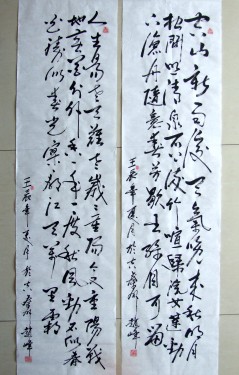 空山新雨後天氣晚來秋明月
松間照清泉石上流竹喧歸浣女蓮動
下漁舟隨意春芳歇王孫自可留
壬辰年夏月於
人生易老天難老歲歲重陽今又重陽戰
地黃花分外香一年一度秋風勁不似春
光勝似春光寥廓江天万里霜
壬辰年夏月於